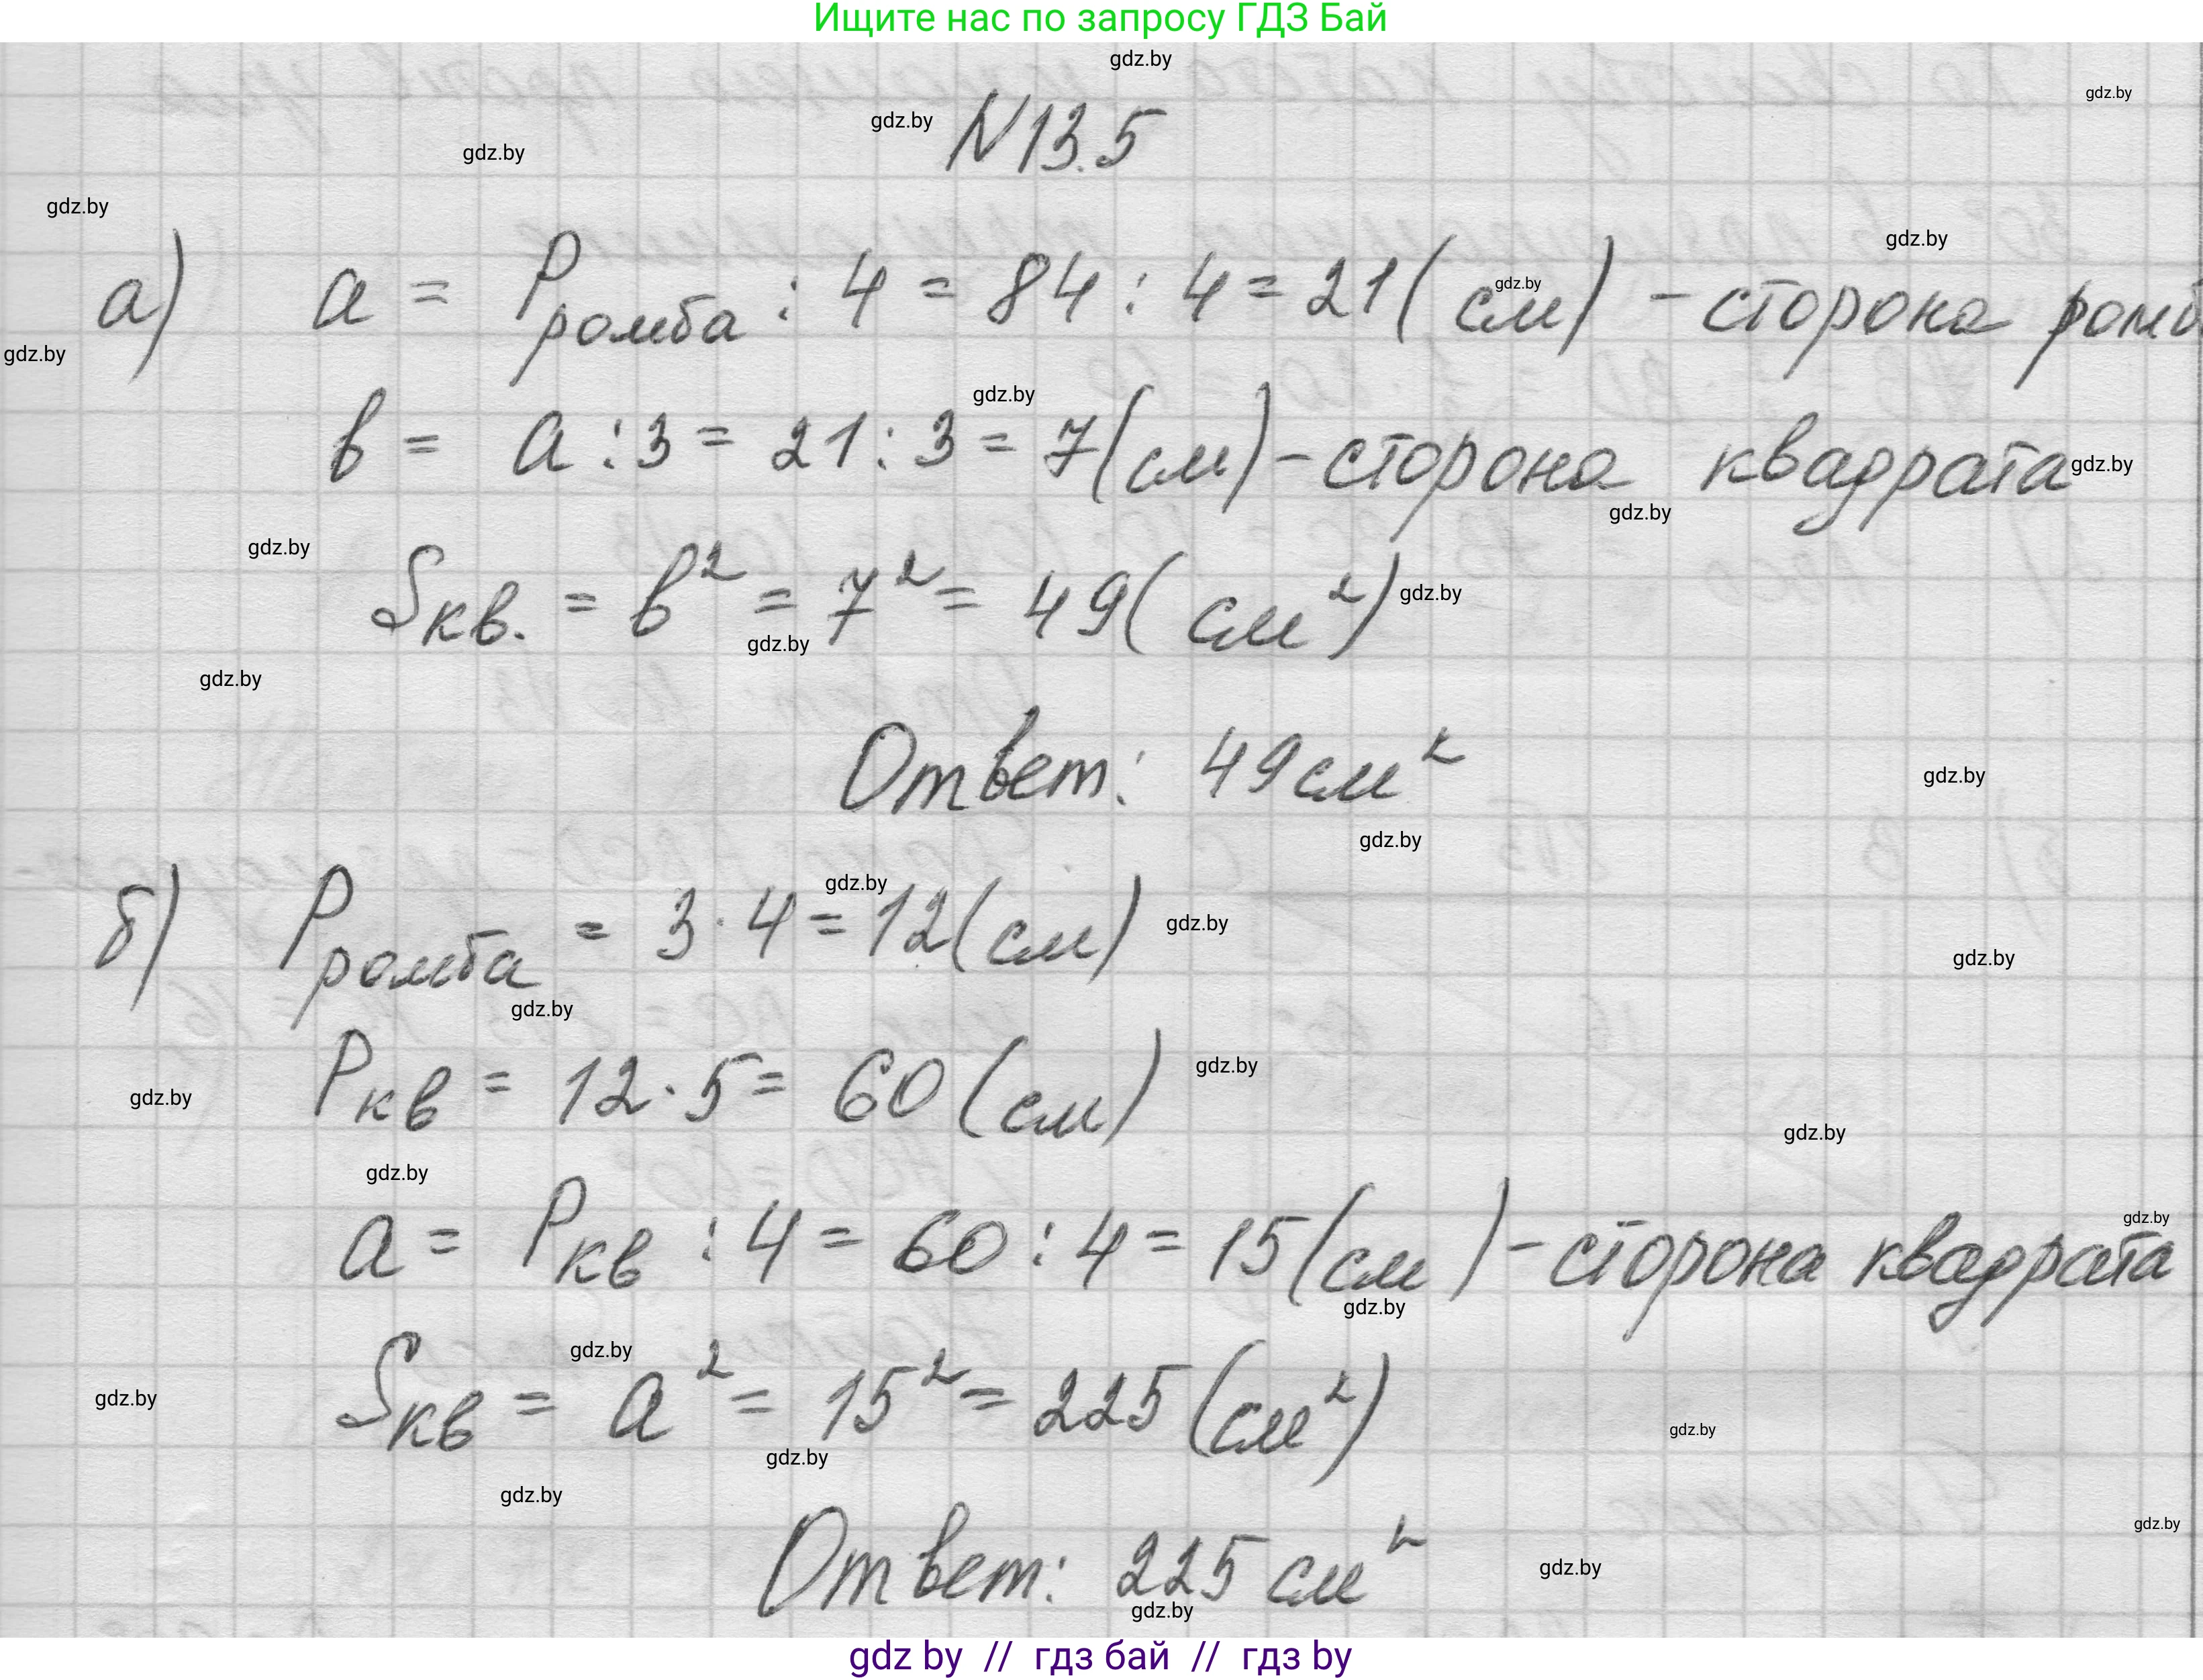 Ищите нас по запросу ГДЗ Бай
gdz.by
gdz.by
gdz.by
gdz.by
N13.5
gdz.by
gdz.by
а) a = P ромба : 4 = 84 : 4 = 21 ( см) - сторона ромб
gdz.by
gdz.by
gdz.by
в = a : 3 = 21 : 3 = 7(см) - сторона квадрата
gdz.by
gdz.by
gdz.by
Sкв. = в² = 7² = 49( см²)
gdz.by
gdz.by
gdz.by
Ответ: 49см²
gdz.by
gdz.by
gdz.by
б) P ромба = 3 · 4 = 12(см)
gdz.by
gdz.by
gdz.by
Pкв = 12 · 5 = 60 (см)
gdz.by
gdz.by
gdz.by
gdz.by
gdz.by
a = Pкв : 4 = 60 : 4 = 15(см ) - сторона квадрата
gdz.by
gdz.by
gdz.by
Sкв = a² = 15² = 225 (см²)
gdz.by
gdz.by
gdz.by
gdz.by
Ответ: 225 см²
gdz.by
gdz.by
gdz by // гдз бай // гдз by